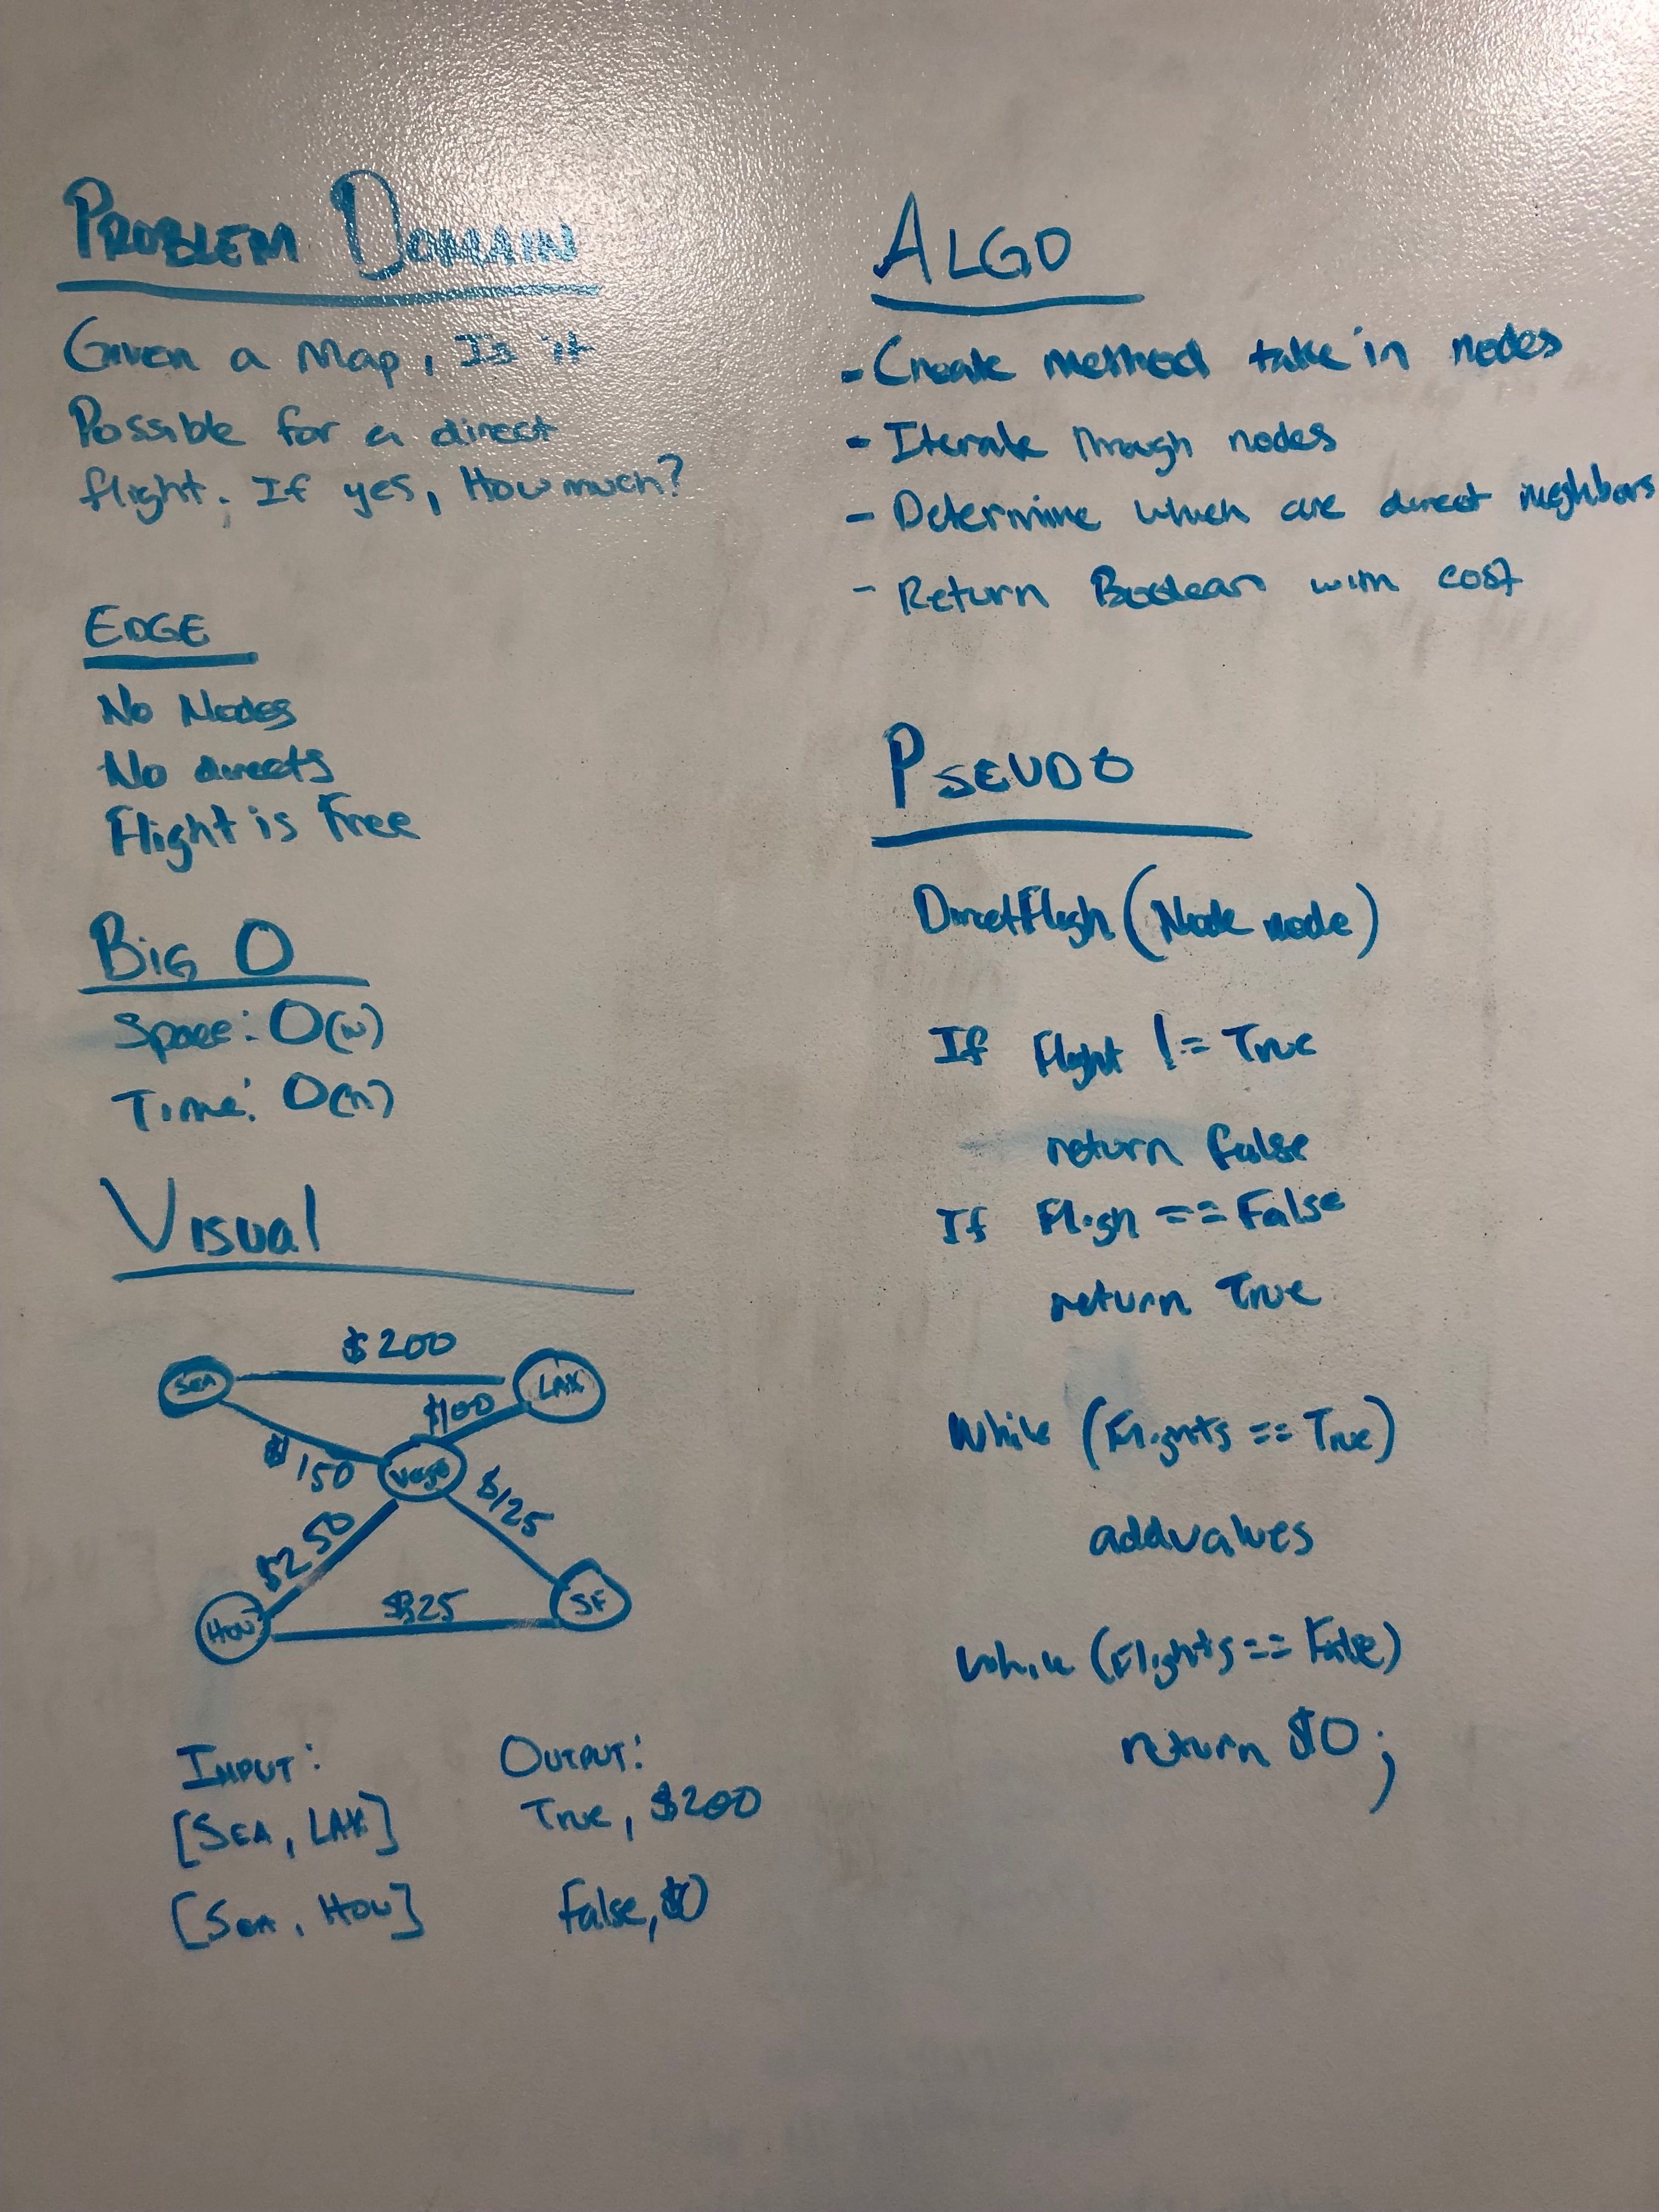 PROBLEM DOMAIN
Given a Map, Is it
Possible for a direct
flight. If yes, How much?
EDGE
No Nodes
No directs
Flight is Free
BIG O
Space: O(N)
Time: O(n)
VISUAL
$200
SEA
LAX
$100
$150
Vegas
$125
$250
HOU
SF
INPUT:
[SEA, LAX]
[SEA, HOU]
OUTPUT:
True, $200
False, $0
ALGO
- Create method take in nodes
- Iterate through nodes
- Determine which are direct neighbors
- Return Boolean with cost
PSEUDO
DirectFligh(Node node)
If Flight != True
return false
If Fligh == False
return True
While (Flights == True)
addvalues
while (Flights == False)
return $0;